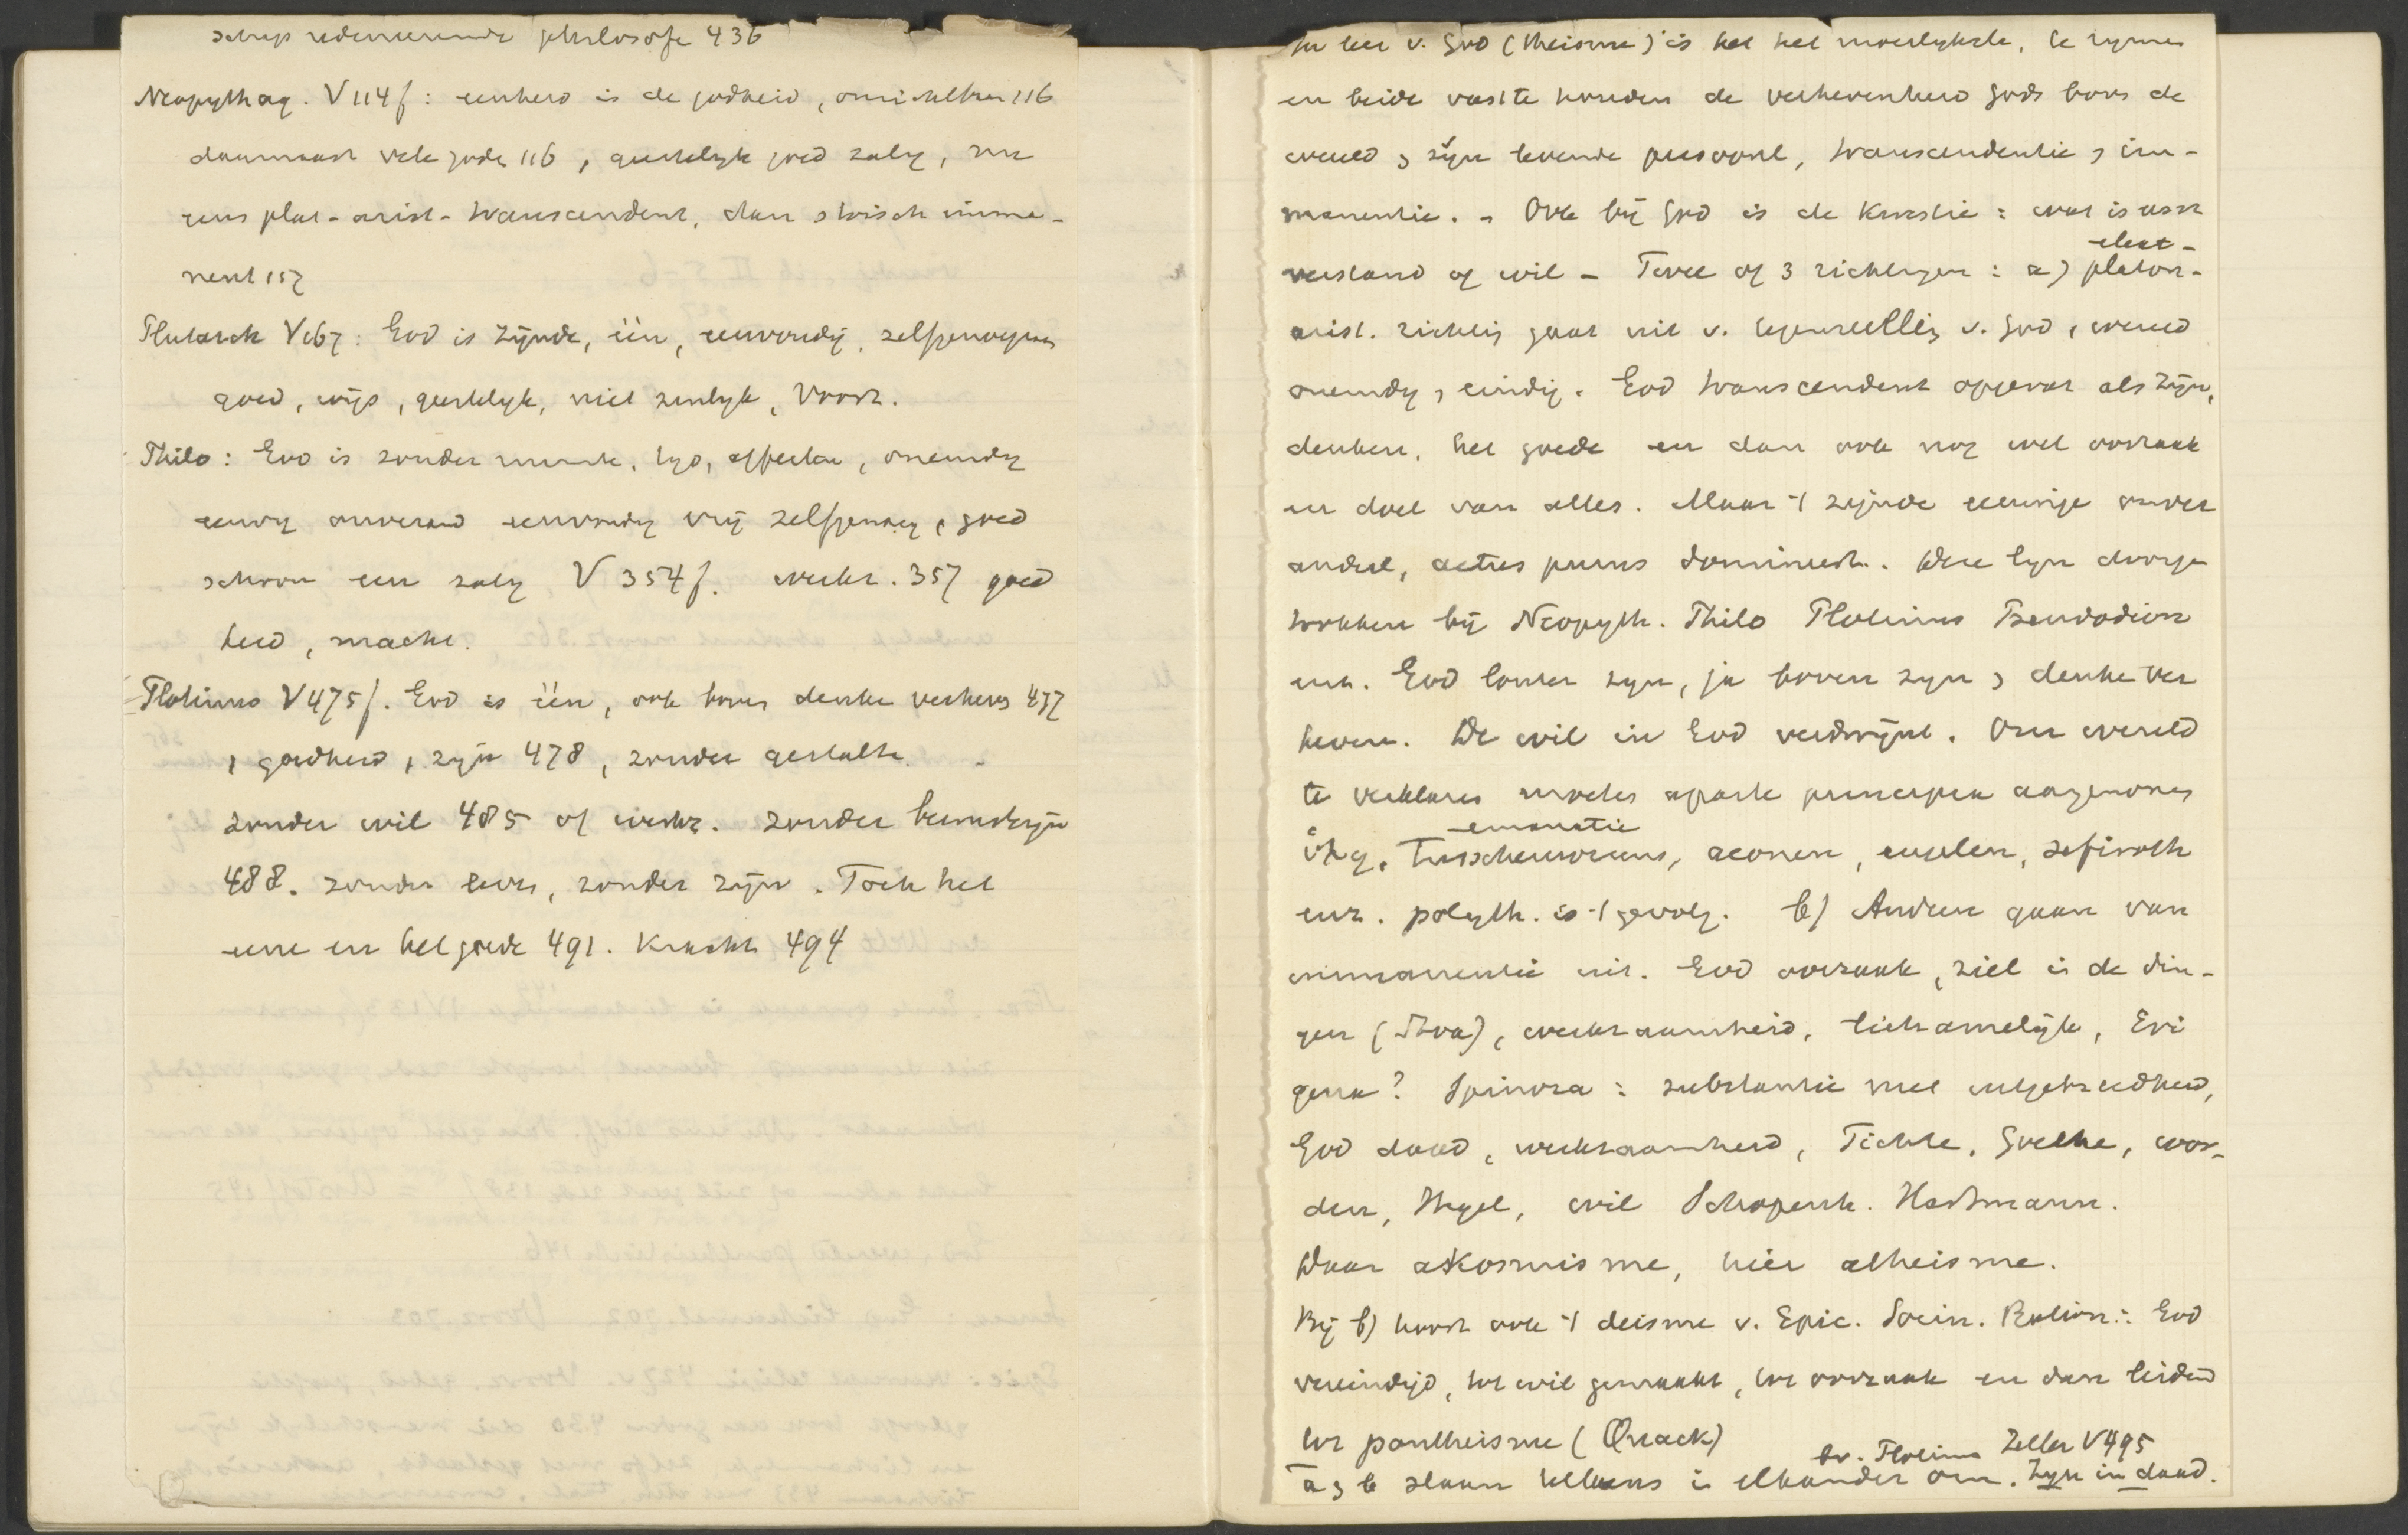 scherp redeneerende philosofe 436
Neopythag. V 114f: eenheid is de godheid, 116
daarnaast vele goden 116, geestelyk goed zalig, nu
eens plat-arist-transcendent, dan stoisch imma-
nent 157
Plutarch V 167: God is zijnde, één, eenvoudig, zelfgenoegzaam
goed, wijs, geestelyk, niet zinlyk, Voorz.
Philo: God is zonder ruimte, tyd, affecten, oneindig
eeuwig onverand eenvoudig vrij zelfgenoeg, goed
schoon een zalig V 354f. werkz. 357 goed
heid, macht.
Plotinus V 475f. God is één, ook boven denken verheven 477
, goedheid, zijn 478, zonder gestalte
zonder wil 485 of werkz. zonder bewustzijn
488. zonder leven, zonder zijn. Toch het
eene en het goede 491. Kracht 494
In leer v. God (theisme) is het het moeilykste, te rymen
en beide vast te houden de verhevenheid Gods boven de
wereld & zijn levende persoonl, transcendentie & im-
manentie. - Ook bij God is de kwestie: wat is eerst
verstand of wil - Twee of 3 richtingen: a) platon-
eleat-
arist. richting gaat uit v. tegenstelling v. God, wereld
oneindig, eindig. God transcendent opgevat als zijn,
denken, het goede en dan ook nog wel oorzaak
en doel van alles. Maar 't zijnde eeuwige onver
anderl, actus purus domineert. Deze lyn doorge
trokken bij Neopyth. Philo Plotinus Pseudodion
enz. God louter zyn, ja boven zyn & denken ver
heven. De wil in God verdwijnt. Om wereld
te verklaren moeten aparte principen aangenomen
emanatie
ὕλη, Tusschenwezens, aeonen, engelen, sefiroth
enz. polyth. is 't gevolg. b) Andere gaan van
immanentie uit. God oorzaak, ziel in de din-
gen (Stoa), werkzaamheid, lichamelijk, Eri
gena? Spinoza: substantie met uitgebreidheid,
God daad, werkzaamheid, Fichte, Goethe, wor-
den, Hegel, wil Schopenh. Hartmann.
Daar akosmisme, hier atheisme.
Bij b) hoort ook 't deisme v. Epic. Socin. Ration.: God
vereindigd, tot wil gemaakt, tot oorzaak en dan leidend
tot pantheisme (Quack)
bv. Plotinus Zeller V 495
a & b slaan telkens in elkander om. Zyn in daad.